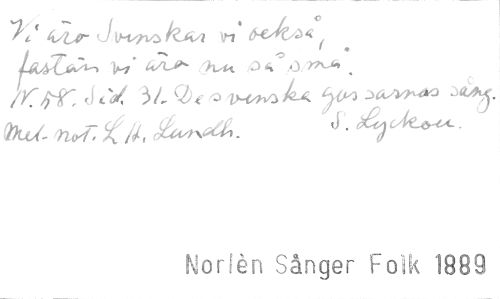 Vi äro Svenskar vi också,
fastän vi äro nu så små.
N. 58. Sid. 31. De svenska gossarnas sång.
Mel- not. L. H. Lundh. S. Lyckou.
Norlèn Sånger Folk 1889